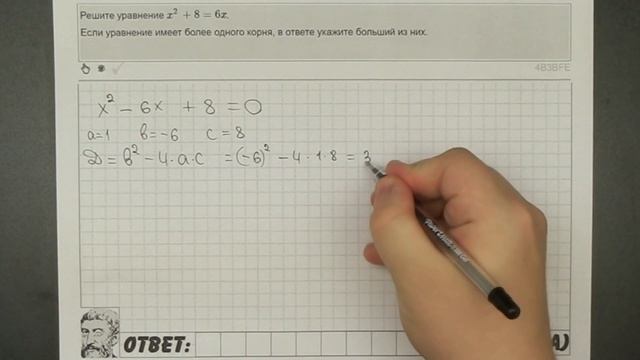 Решите уравнение x² + 8 = 6x.
Если уравнение имеет более одного корня, в ответе укажите больший из них.
4B3BFE
x² − 6x + 8 = 0
a=1 b=−6 c=8
Д = b² − 4·a·c = (−6)² − 4·1·8 = 3
ОТВЕТ: